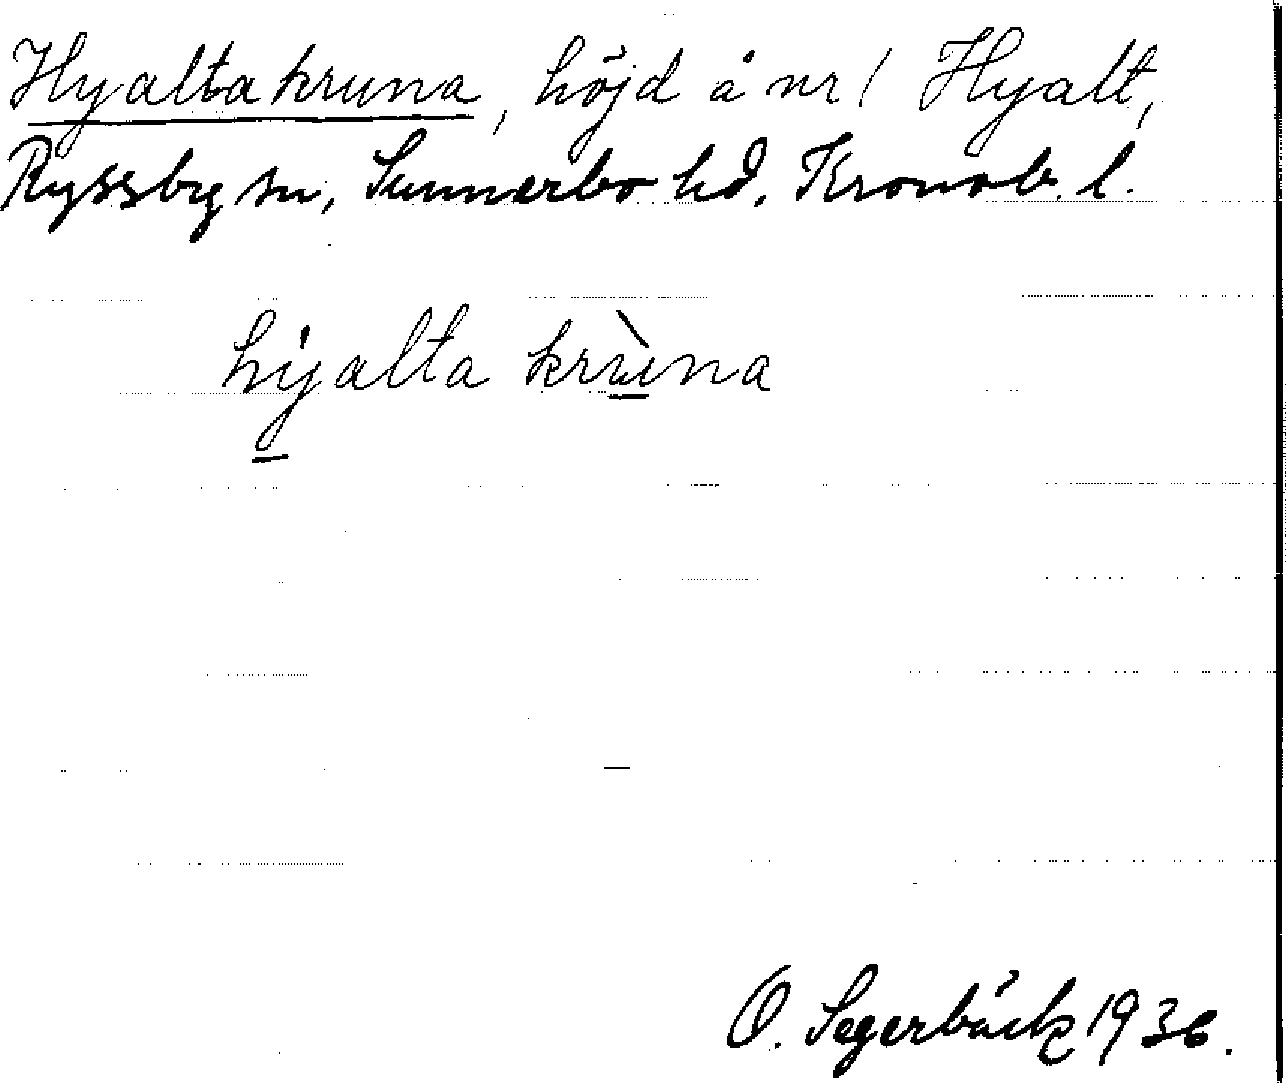 Hyaltakruna, höjd å nr 1 Hyalt,
Ryssby sn, Sunnerbo hd. Kronob. l.
hýalta krùna
O. Segerbäck 1936.